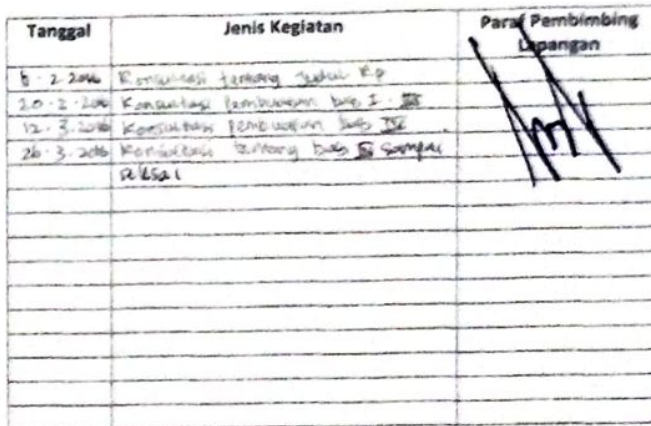 Tanggal Jenis Kegiatan Paraf Pembimbing Lapangan
6 - 2 2016 Konsultasi tentang Judul Kp
20 - 2 - 2016 Konsultasi Pembuatan bab I - III
12 - 3 - 2016 Konsultasi Pembuatan bab IV
26 - 3 - 2016 Konsultasi tentang bab sampai
selesai